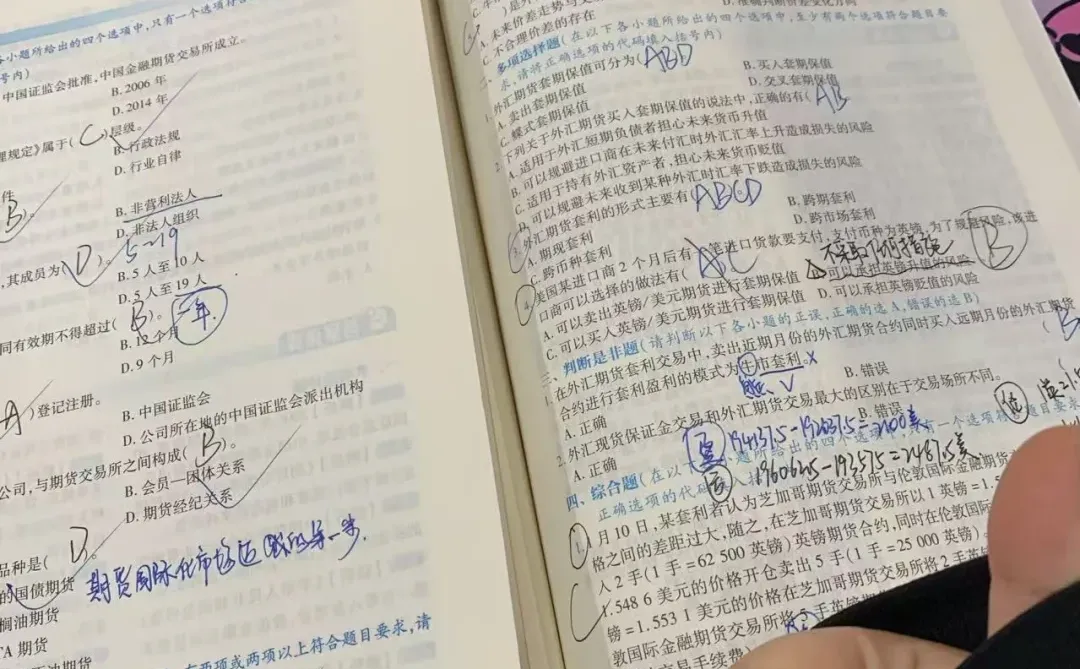 各小题所给出的四个选项中,只有一个选项符合
号内)
中国证监会批准,中国金融期货交易所成立。
B. 2006 年
D. 2014 年
理规定》属于( C )层级。
B. 行政法规
D. 行业自律
件
B
B. 非营利法人
D. 非法人组织
,其成员为( D )。 5-19
B. 5 人至 10 人
D. 5 人至 19 人
同有效期不得超过( B )。 二年
B. 12 个月
D. 9 个月
A )登记注册。
B. 中国证监会
D. 公司所在地的中国证监会派出机构
公司,与期货交易所之间构成( B )。
B. 会员—团体关系
D. 期货经纪关系
品种是( D )。
的国债期货
期货国际化市场迈
榈油期货
TA 期货
油期货
有两项或两项以上符合题目要求,请
D. 准确判断价差变化方向
A. 未来价差走势与
C. 不合理价差的存在
二、多项选择题(在以下各小题所给出的四个选项中,至少有两个选项符合题目要
求,请将正确选项的代码填入括号内)
1. 外汇期货套期保值可分为( ABD
A. 卖出套期保值
B. 买入套期保值
C. 蝶式套期保值
D. 交叉套期保值
2. 下列关于外汇期货买入套期保值的说法中,正确的有( AB
A. 适用于外汇短期负债者担心未来货币升值
B. 可以规避进口商在未来付汇时外汇汇率上升造成损失的风险
C. 适用于持有外汇资产者,担心未来货币贬值
D. 可以规避未来收到某种外汇时汇率下跌造成损失的风险
3. 外汇期货套利的形式主要有( ABCD
A. 期现套利
B. 跨期套利
C. 跨币种套利
D. 跨市场套利
4. 美国某进口商 2 个月后有一笔进口货款要支付,支付币种为英镑,为了规避风险,该进
口商可以选择的做法有( AC
B
A. 可以卖出英镑/美元期货进行套期保值
B. 可以承担英镑升值的风险
C. 可以买入英镑/美元期货进行套期保值
D. 可以承担英镑贬值的风险
三、判断是非题(请判断以下各小题的正误,正确的选 A,错误的选 B)
1. 在外汇期货套利交易中,卖出近期月份的外汇期货合约同时买入远期月份的外汇期货
合约进行套利盈利的模式为牛市套利。 X
( B
熊 V
A. 正确
B. 错误
2. 外汇现货保证金交易和外汇期货交易最大的区别在于交易场所不同。
A. 正确
B. 错误
四、综合题(在以下各小题所给出的四个选项中,只有一个选项符合题目要求
正确选项的代码填入括
1. 1 月 10 日,某套利者认为芝加哥期货交易所与伦敦国际金融期货
格之间的差距过大,随之,在芝加哥期货交易所以 1 英镑=1.5
入 2 手(1 手=62 500 英镑)英镑期货合约,同时在伦敦国际
C
1.548 6 美元的价格开仓卖出 5 手(1 手=25 000 英镑)
镑=1.553 1 美元的价格在芝加哥期货交易所将 2 手英
敦国际金融期货交易所将
手英镑期
交易手续费)